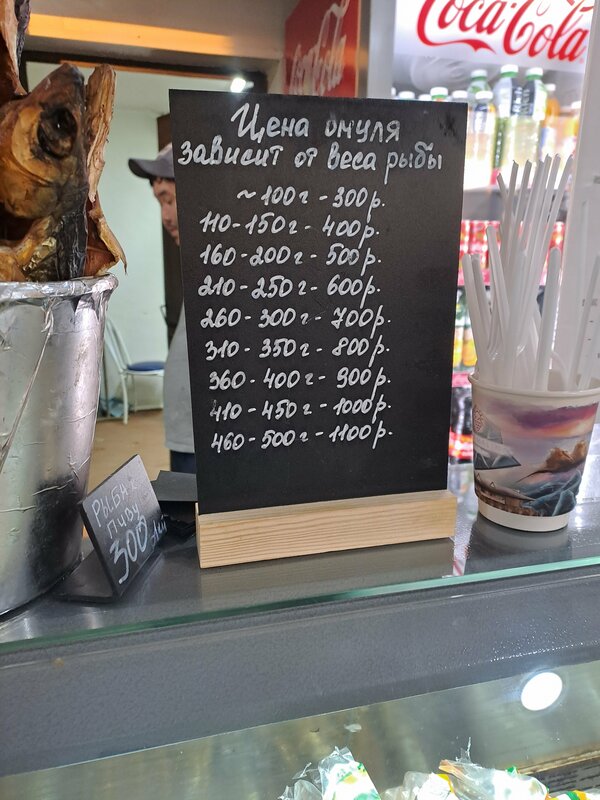 Цена омуля
зависит от веса рыбы
~100г - 300р.
110-150г - 400р.
160-200г - 500р.
210-250г - 600р.
260-300г - 700р.
310-350г - 800р.
360-400г - 900р.
410-450г - 1000р.
460-500г - 1100р.
РЫБА К
ПИВУ
300
Coca-Cola
Coca-Cola